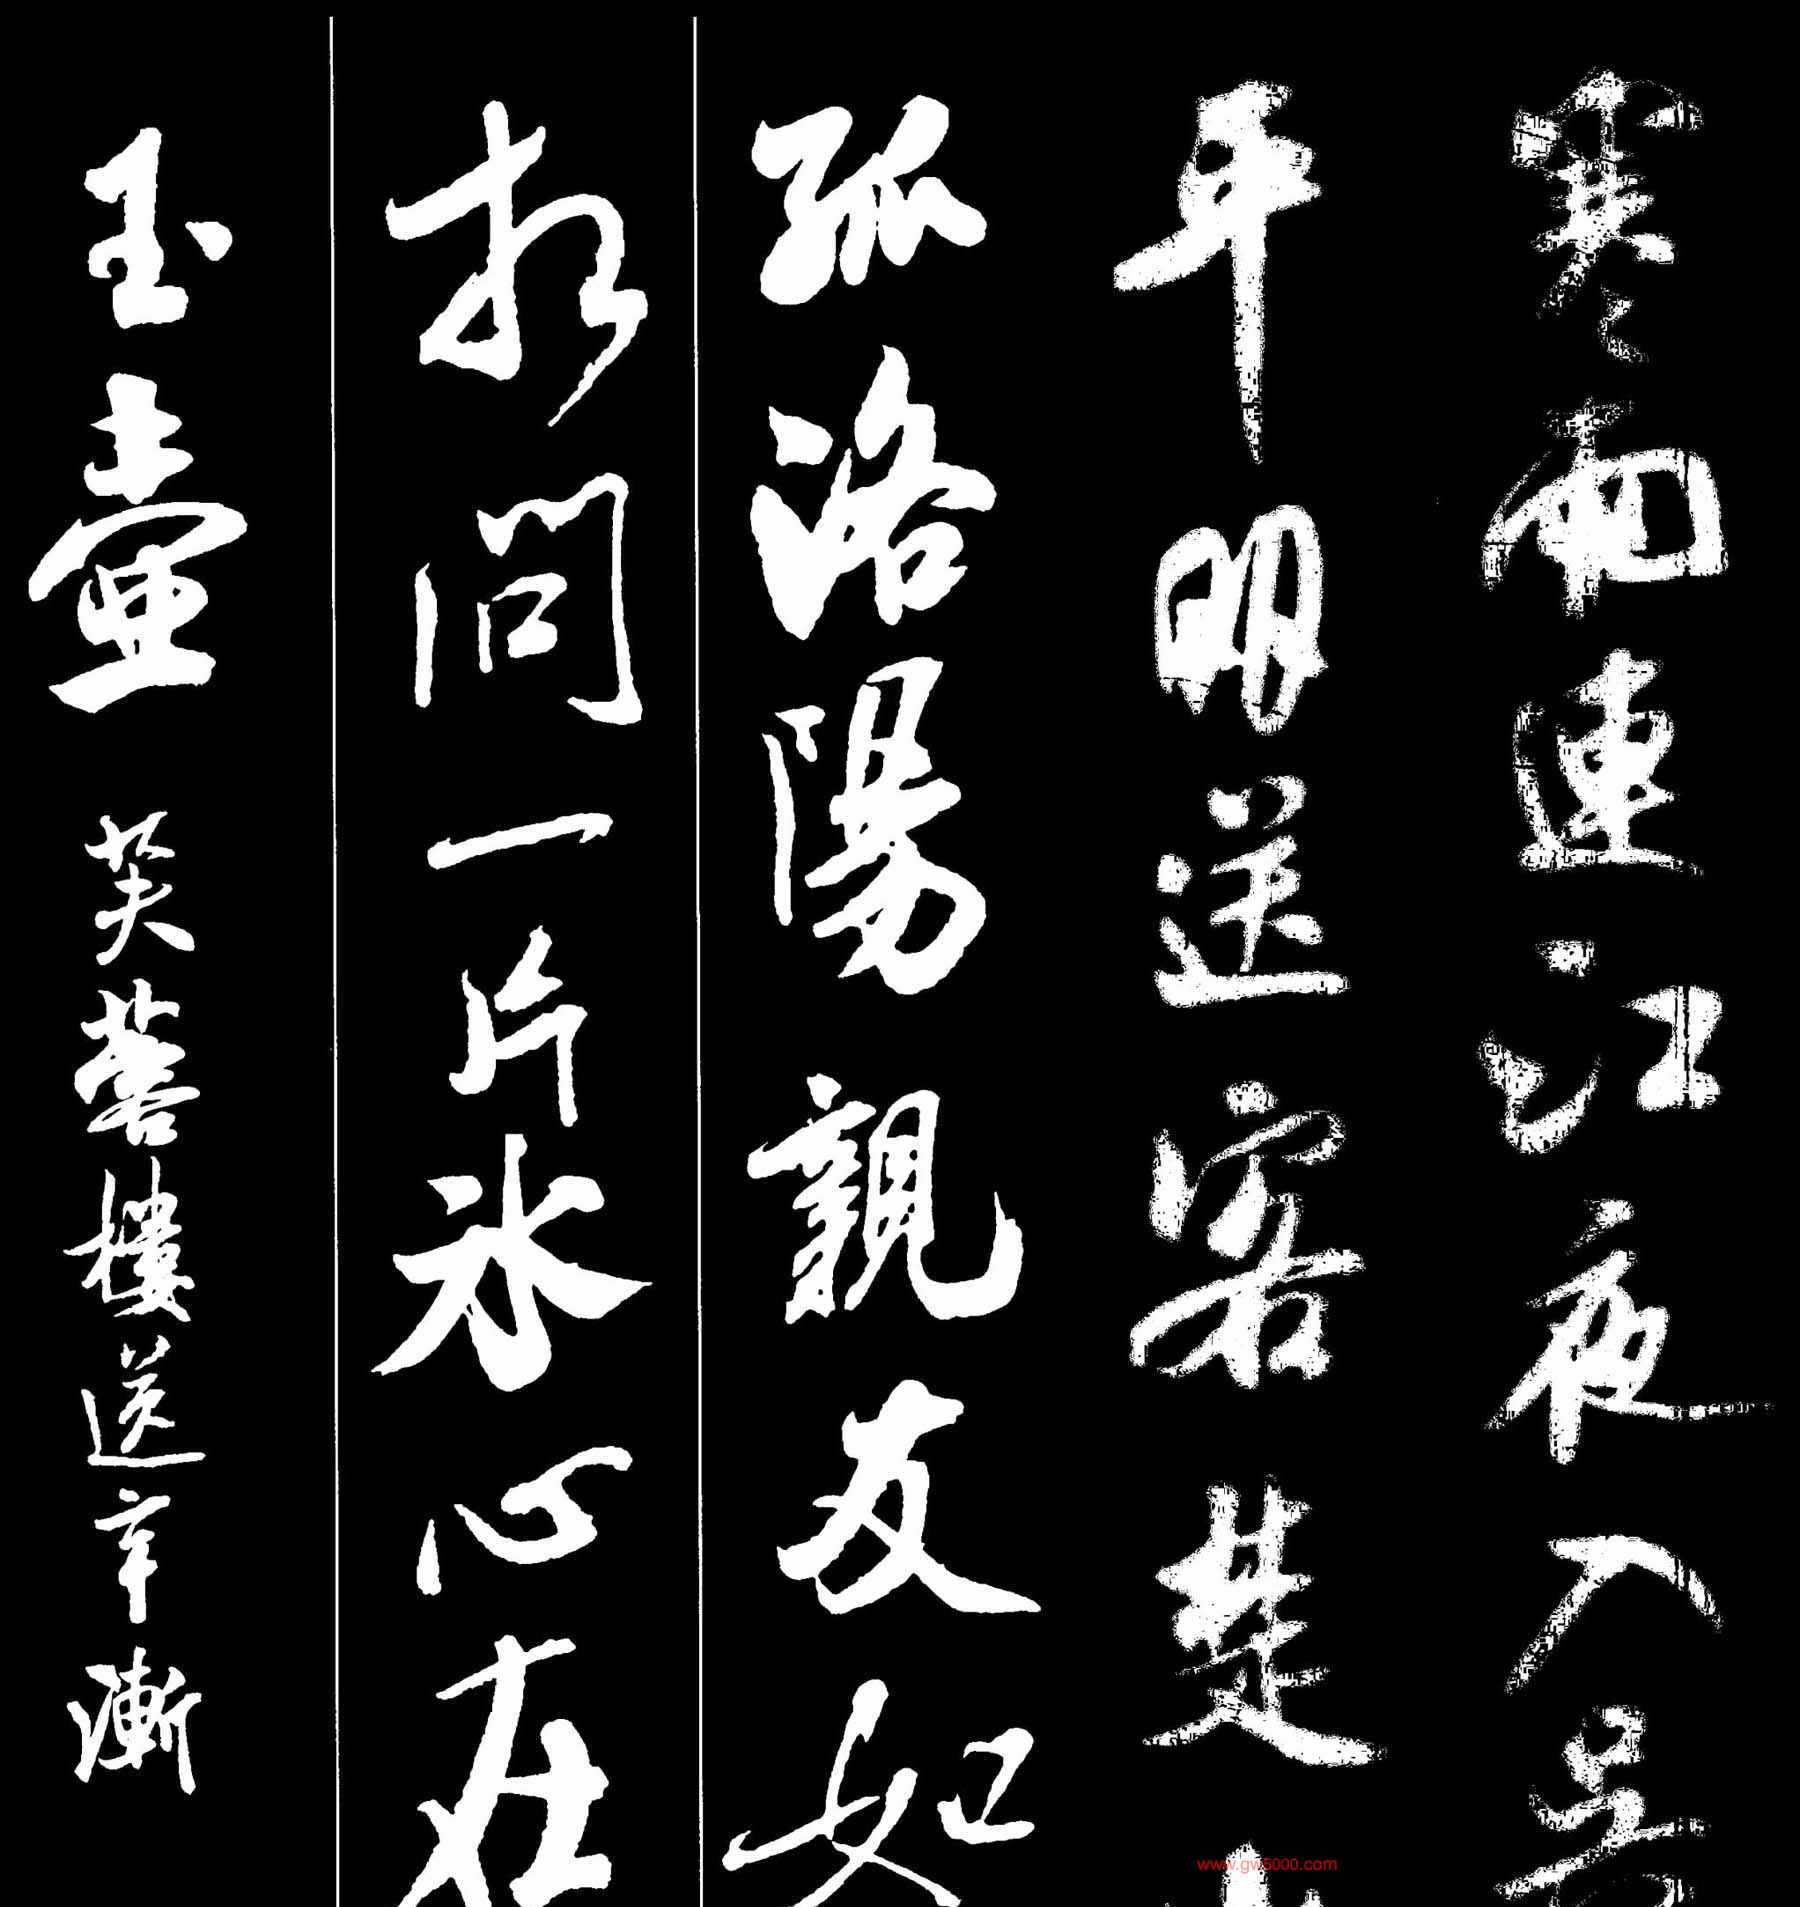 寒雨連江夜入吳
平明送客楚山
孤洛陽親友如
相問一片冰心在
玉壺 芙蓉樓送辛漸
www.gw5000.com